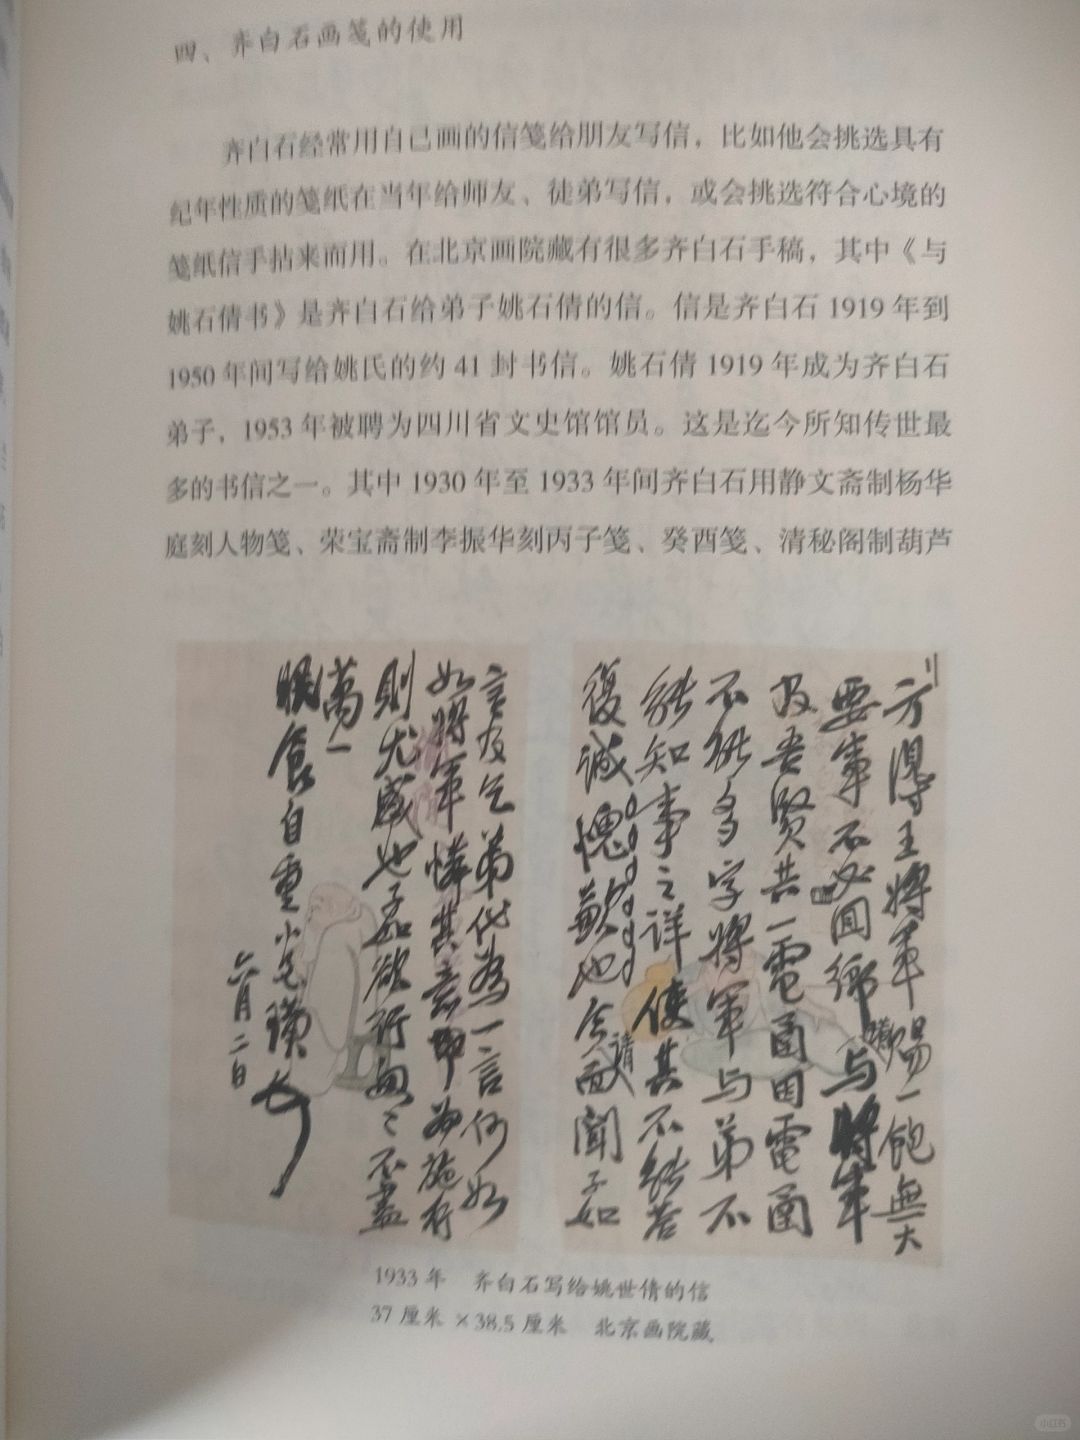 四、齐白石画笺的使用
齐白石经常用自己画的信笺给朋友写信，比如他会挑选具有
纪年性质的笺纸在当年给师友、徒弟写信，或会挑选符合心境的
笺纸信手拈来而用。在北京画院藏有很多齐白石手稿，其中《与
姚石倩书》是齐白石给弟子姚石倩的信。信是齐白石 1919 年到
1950 年间写给姚氏的约 41 封书信。姚石倩 1919 年成为齐白石
弟子，1953 年被聘为四川省文史馆馆员。这是迄今所知传世最
多的书信之一。其中 1930 年至 1933 年间齐白石用静文斋制杨华
庭刻人物笺、荣宝斋制李振华刻丙子笺、癸酉笺、清秘阁制葫芦
方得王將軍賜一飽無大
要事不必回鄉與將軍
及吾賢共一電函因電函
不能多字將軍與弟不
能知事之詳使其不能答
復誠愧歉也今請聞子如
言友乞弟代為一言何如
如將軍憐其意即為施行
則尤感也子如欲行匆匆不盡
萬一
眠食自重小兄璜
六月二日
1933 年 齐白石写给姚世倩的信
37 厘米 × 38.5 厘米 北京画院藏
小红书